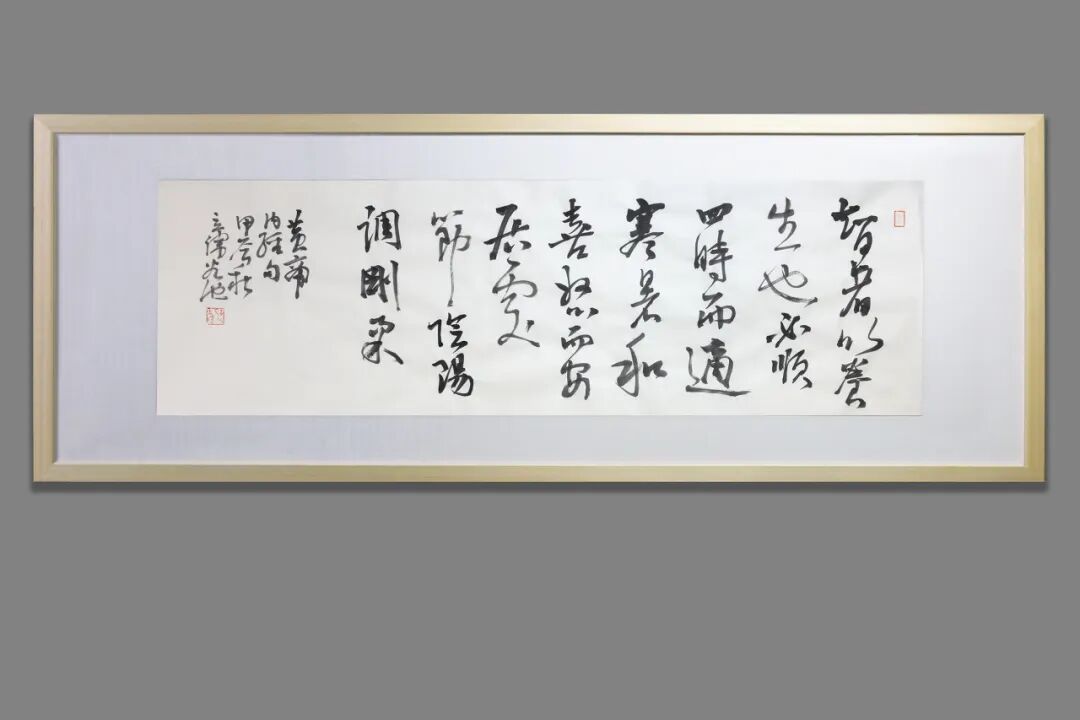 智者以養
生也必順
四時而適
寒暑和
喜怒而安
居處
節陰陽
調剛柔
黃帝
內經句
甲辰秋